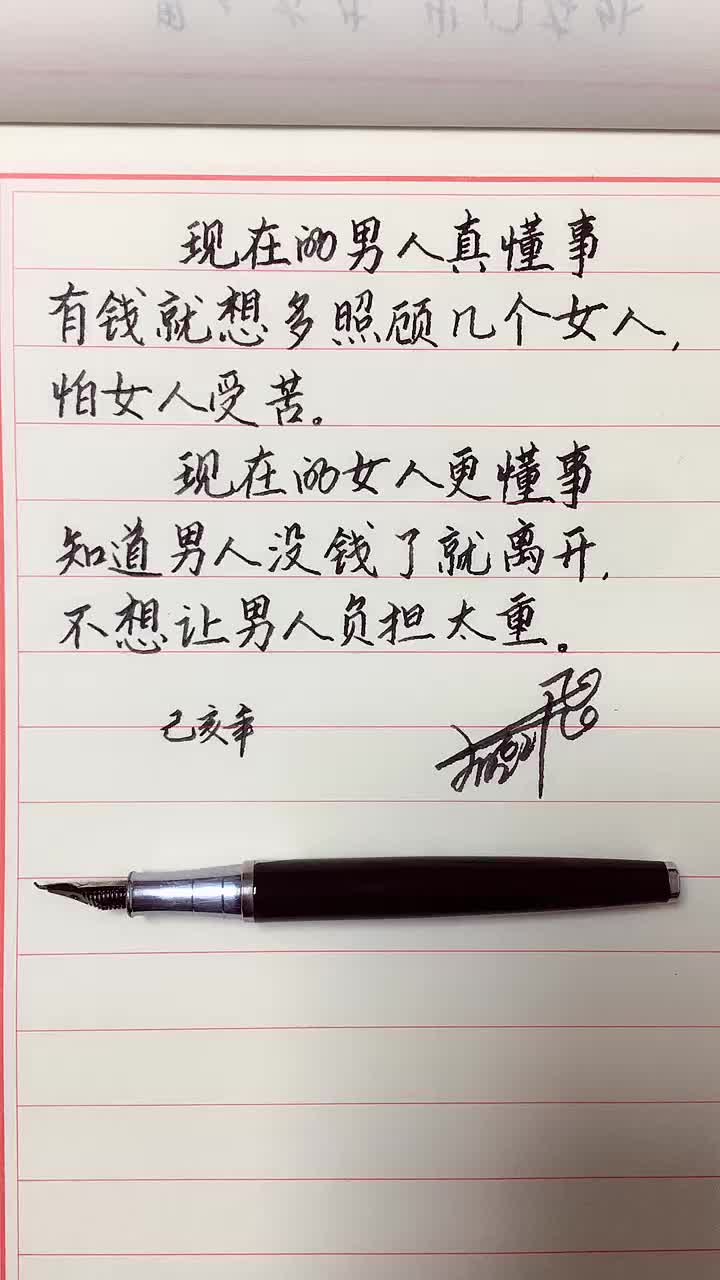 现在的男人真懂事
有钱就想多照顾几个女人,
怕女人受苦。
现在的女人更懂事
知道男人没钱了就离开,
不想让男人负担太重。
己亥年